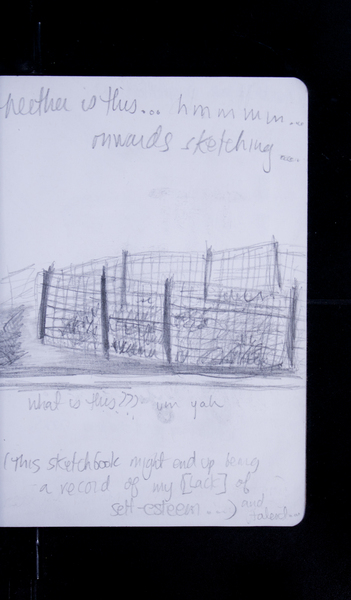 is this... hmmmmm...
onwards sketching.....
what is this??? um yah
(This sketchbook might end up being
a record of my [lack] of
self-esteem....) and
talent...